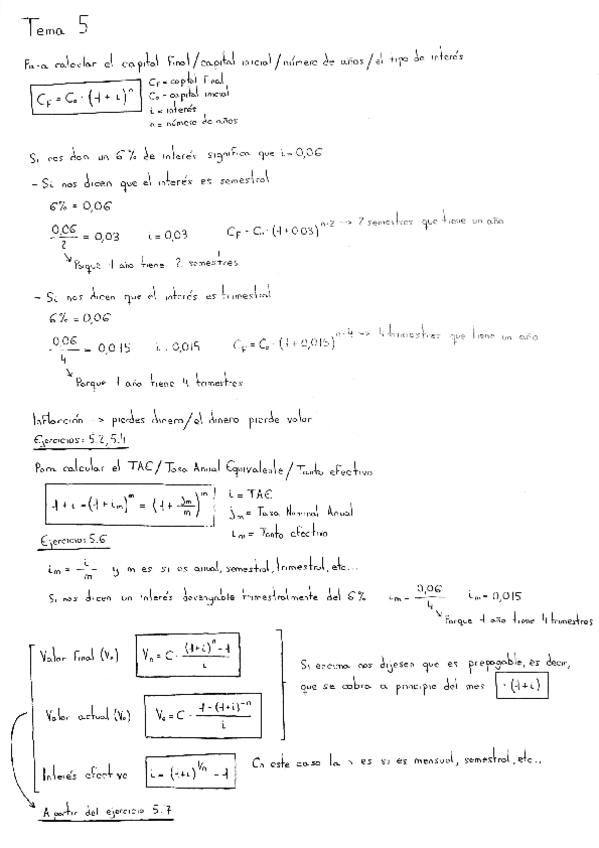 Tema 5
Para calcular el capital final/capital inicial/número de años/el tipo de interés
C_F = C_0 · (1 + i)^n
C_F = capital final
C_0 = capital inicial
i = interés
n = número de años
Si nos dan un 6% de interés significa que i = 0,06
- Si nos dicen que el interés es semestral
6% = 0,06
0,06/2 = 0,03 i = 0,03 C_F = C_0 · (1 + 0,03)^n·2 → 2 semestres que tiene un año
Porque 1 año tiene 2 semestres
- Si nos dicen que el interés es trimestral
6% = 0,06
0,06/4 = 0,015 i = 0,015 C_F = C_0 · (1 + 0,015)^n·4 → 4 trimestres que tiene un año
Porque 1 año tiene 4 trimestres
Inflacción → pierdes dinero/el dinero pierde valor
Ejercicios: 5.2, 5.4
Para calcular el TAE/Tasa Anual Equivalente/Tanto efectivo
1 + i = (1 + i_m)^m = (1 + j_m/m)^m
i = TAE
j_m = Tasa Nominal Anual
i_m = Tanto efectivo
Ejercicio: 5.6
i_m = i/m y m es si es anual, semestral, trimestral, etc...
Si nos dicen un interés devengable trimestralmente del 6% i_m = 0,06/4 i_m = 0,015
Porque 1 año tiene 4 trimestres
Valor final (V_n) V_n = C · (1+i)^n - 1/i
Valor actual (V_0) V_0 = C · 1 - (1+i)^-n/i
Si encima nos dijesen que es prepagable, es decir,
que se cobra a principio del mes · (1+i)
Interés efectivo i = (1+i)^1/n - 1 En este caso la n es si es mensual, semestral, etc..
A partir del ejercicio 5.7